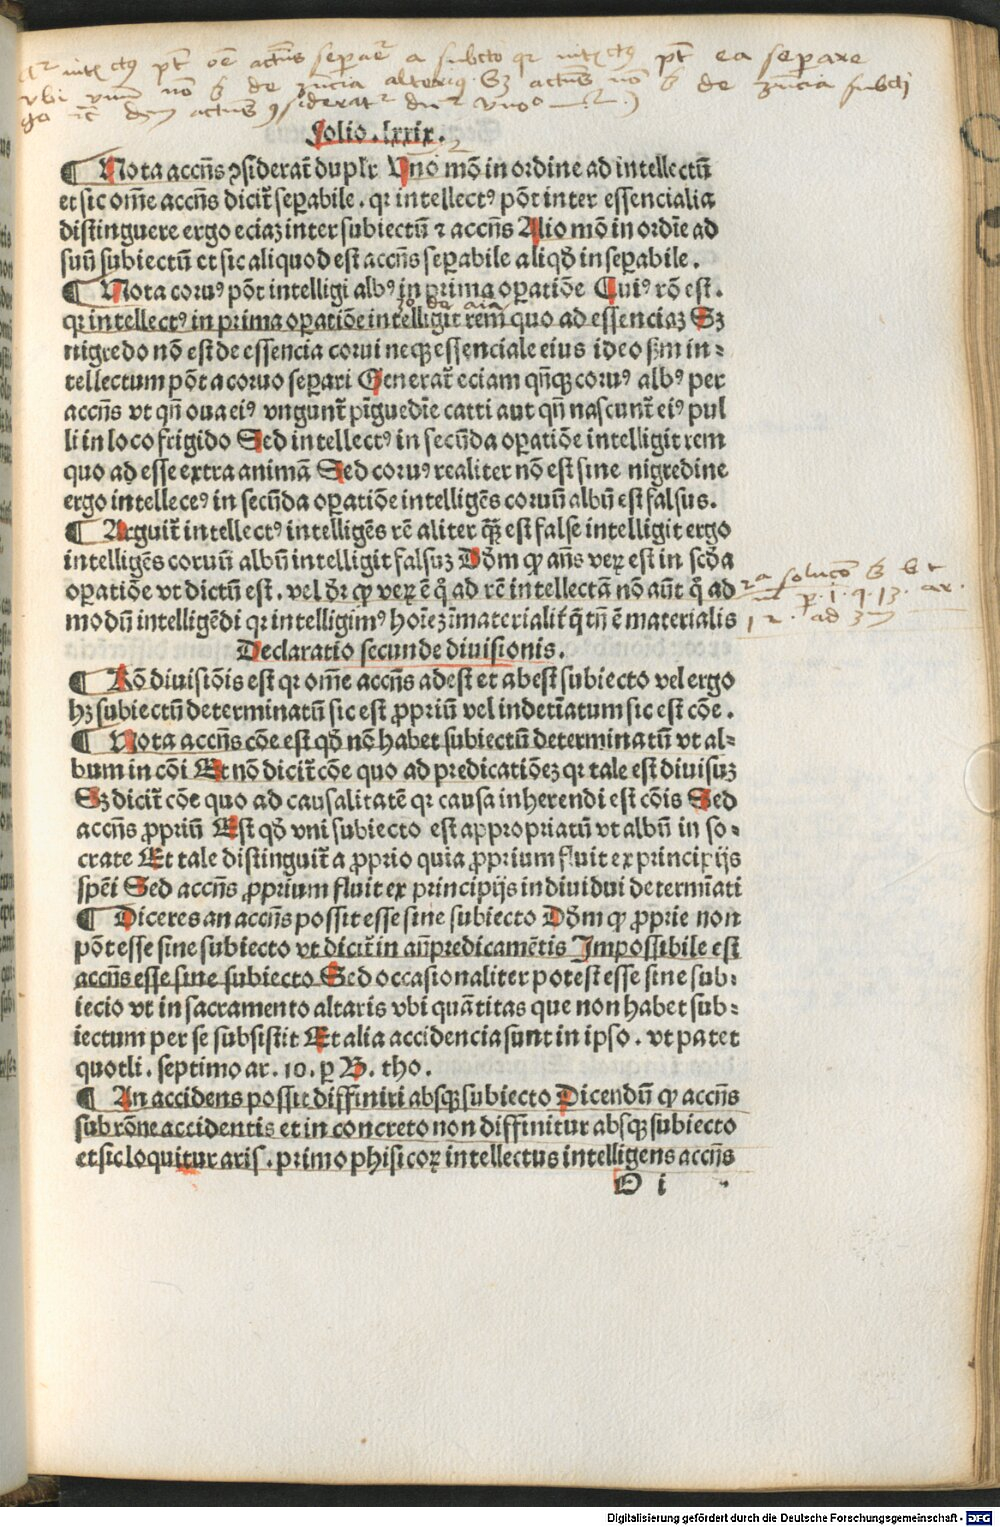 intellectus pt oe actus separe a subcto qr intellectus pt ea separe
ubi unum no de alterius Sz actus no de subcti
Folio .lxxix.
¶ Nota accn̄s ꝯsiderat̄ duplr̄. Uno mō in ordine ad intellectū
et sic om̄e accn̄s dicit̄ sepabile. qr intellectꝰ pōt inter essencialia
distinguere ergo eciaꝫ inter subiectū ⁊ accn̄s Alio mō in ordīe ad
suū subiectū et sic aliquod est accn̄s sepabile aliqd̄ insepabile.
¶ Nota coruꝰ pōt intelligi albꝰ in prima opatiōe Cuiꝰ rō est.
qr intellectꝰ in prima opatiōe intelligit rem quo ad essenciaꝫ Sꝫ
nigredo nō est de essencia corui neqꝫ essenciale eius ideo ẜm in-
tellectum pōt a coruo separi Generat̄ eciam qn̄qꝫ coruꝰ albꝰ per
accn̄s vt qn̄ oua eiꝰ vngunt̄ pīguedīe catti aut qn̄ nascunt̄ eiꝰ pul
li in loco frigido Sed intellectꝰ in secūda opatiōe intelligit rem
quo ad esse extra animā Sed coruꝰ realiter nō est sine nigredine
ergo intelleceꝰ in secūda opatiōe intelligēs coruū albū est falsus.
¶ Arguit̄ intellectꝰ intelligēs rē aliter qꝫ̄ est false intelligit ergo
intelligēs coruū albū intelligit falsuꝫ Dd̄m ꝙ an̄s veꝝ est in scd̄a
opatiōe vt dictū est. vel dr̄ ꝙ veꝝ ē q̄ ad rē intellectā nō aūt q̄ ad
modū intelligēdi qr intelligimꝰ hoīeꝫ īmaterialit̄ q̄ tn̄ ē materialis
2a soluco
p. 1. q. 13. ar.
12. ad 3m
Declaratio secunde diuisionis.
¶ Rō diuisiōis est qr om̄e accn̄s adest et abest subiecto vel ergo
hꝫ subiectū determinatū sic est ꝓpriū vel indetīatum sic est cōe.
¶ Nota accn̄s cōe est qd̄ nō habet subiectū determinatū vt al-
bum in cōi Et nō dicit̄ cōe quo ad predicatiōeꝫ qr tale est diuisuꝫ
Sꝫ dicit̄ cōe quo ad causalitatē qr causa inherendi est cōis Sed
accn̄s ꝓpriū Est qd̄ vni subiecto est appropriatū vt albū in so-
crate Et tale distinguit̄ a ꝓprio quia ꝓprium fluit ex principijs
spēi Sed accn̄s ꝓprium fluit ex principijs indiuidui determīati
¶ Diceres an accn̄s possit esse sine subiecto Dd̄m ꝙ ꝓprie non
pōt esse sine subiecto vt dicit̄ in an̄predicamētis Impossibile est
accn̄s esse sine subiecto Sed occasionaliter potest esse sine sub-
iecto vt in sacramento altaris vbi quātitas que non habet sub-
iectum per se subsistit Et alia accidencia sunt in ipso. vt patet
quotli. septimo ar. 10. p B. tho.
¶ An accidens possit diffiniri absqꝫ subiecto Dicendū ꝙ accn̄s
sub rōne accidentis et in concreto non diffinitur absqꝫ subiecto
et sic loquitur aris. primo phisicoꝝ intellectus intelligens accn̄s
O i
Digitalisierung gefördert durch die Deutsche Forschungsgemeinschaft - DFG